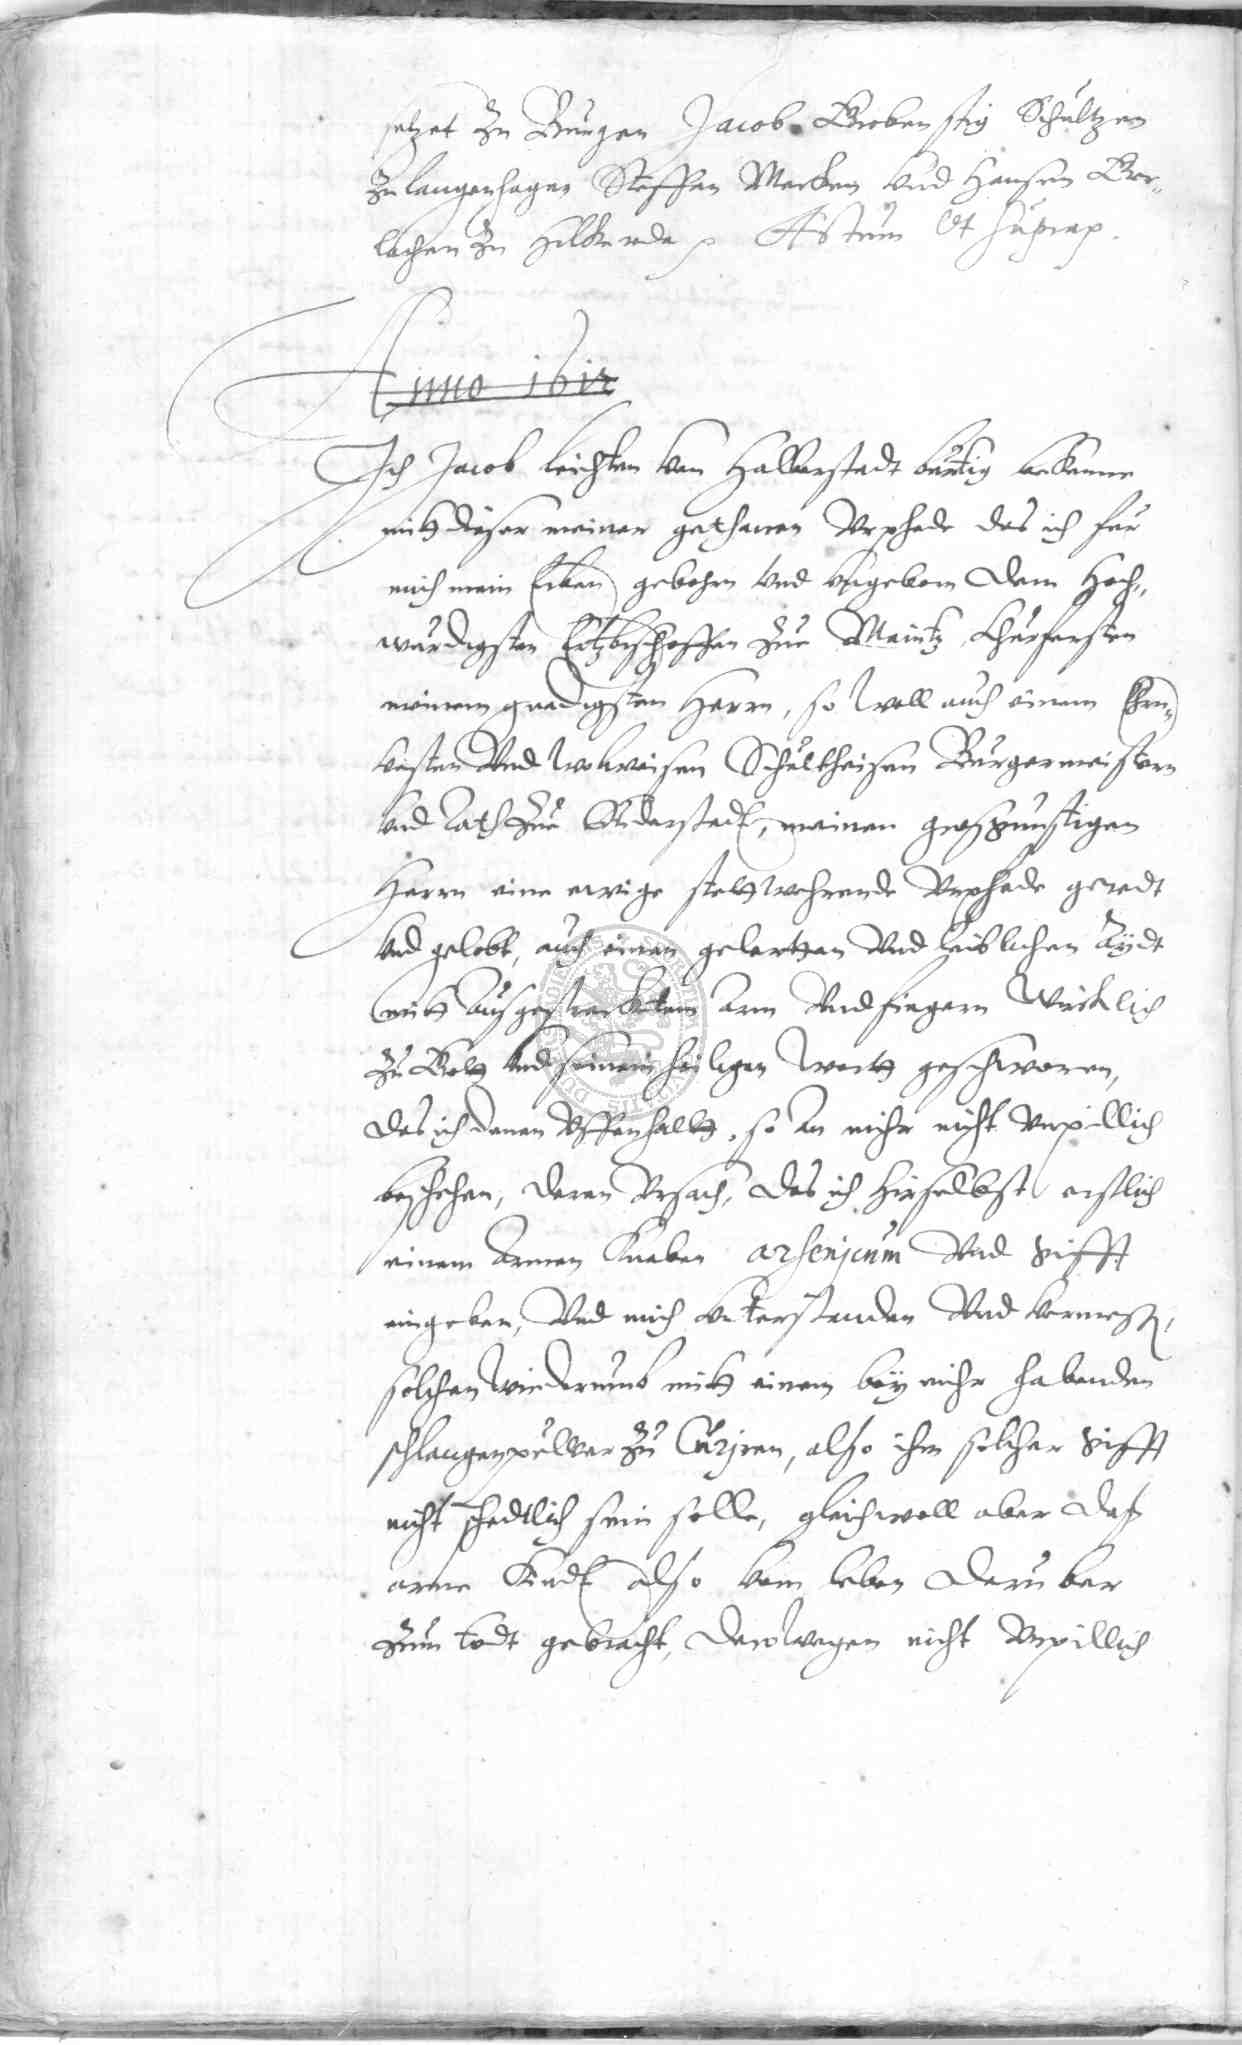 setzet zu Burgen Jacob Grobenstig Schultzen
zu langenhagen Steffen Marcken vnd Hansen Ger„
lachen zu Hilkerode p Actum Vt supra p.
Anno 1612
Ich Jacob leichten von Halberstadt burtig bekenne
mitt dieser meiner gethanen Vrphede das ich fur
mich mein Erben gebohrn vnd vngeborn dem Hoch„
wurdigsten Ertzbischoffen zue Maintz Churfursten
meinem gnedigsten Herrn, so woll auch einem Ehrn„
vesten Vnd wolweisen Schultheisen Burgermeistern
vnd Rath zue Duderstadt, meinen grosgunstigen
Herrn eine ewige stettwehrende Vrphede geredt
vnd gelobt, auch einen gelertten Vnd leiblichen Aÿdt
mitt aufgestrecktem arm Vnd fingern Wirklich
zu Gott vnd seinem heiligen Wortt geschworen,
das ich denen Vffenhaltt, so an mihr nicht Vnpillich
beschehen, deren Vrsach, das ich hirselbst erstlich
einem armen Knaben arsenicum Vnd Gifft
eingeben, Vnd mich vnterstanden Vnd vermessen,
solchen wiederumb mitt einem beÿ mihr habenden
schlangenpulver zu Curiren, also ihm solcher Gifft
nicht schedtlich sein solle, gleichwoll aber daß
arme Kindt also vom leben daruber
zum todt gebracht, derowegen nicht Vnpillich